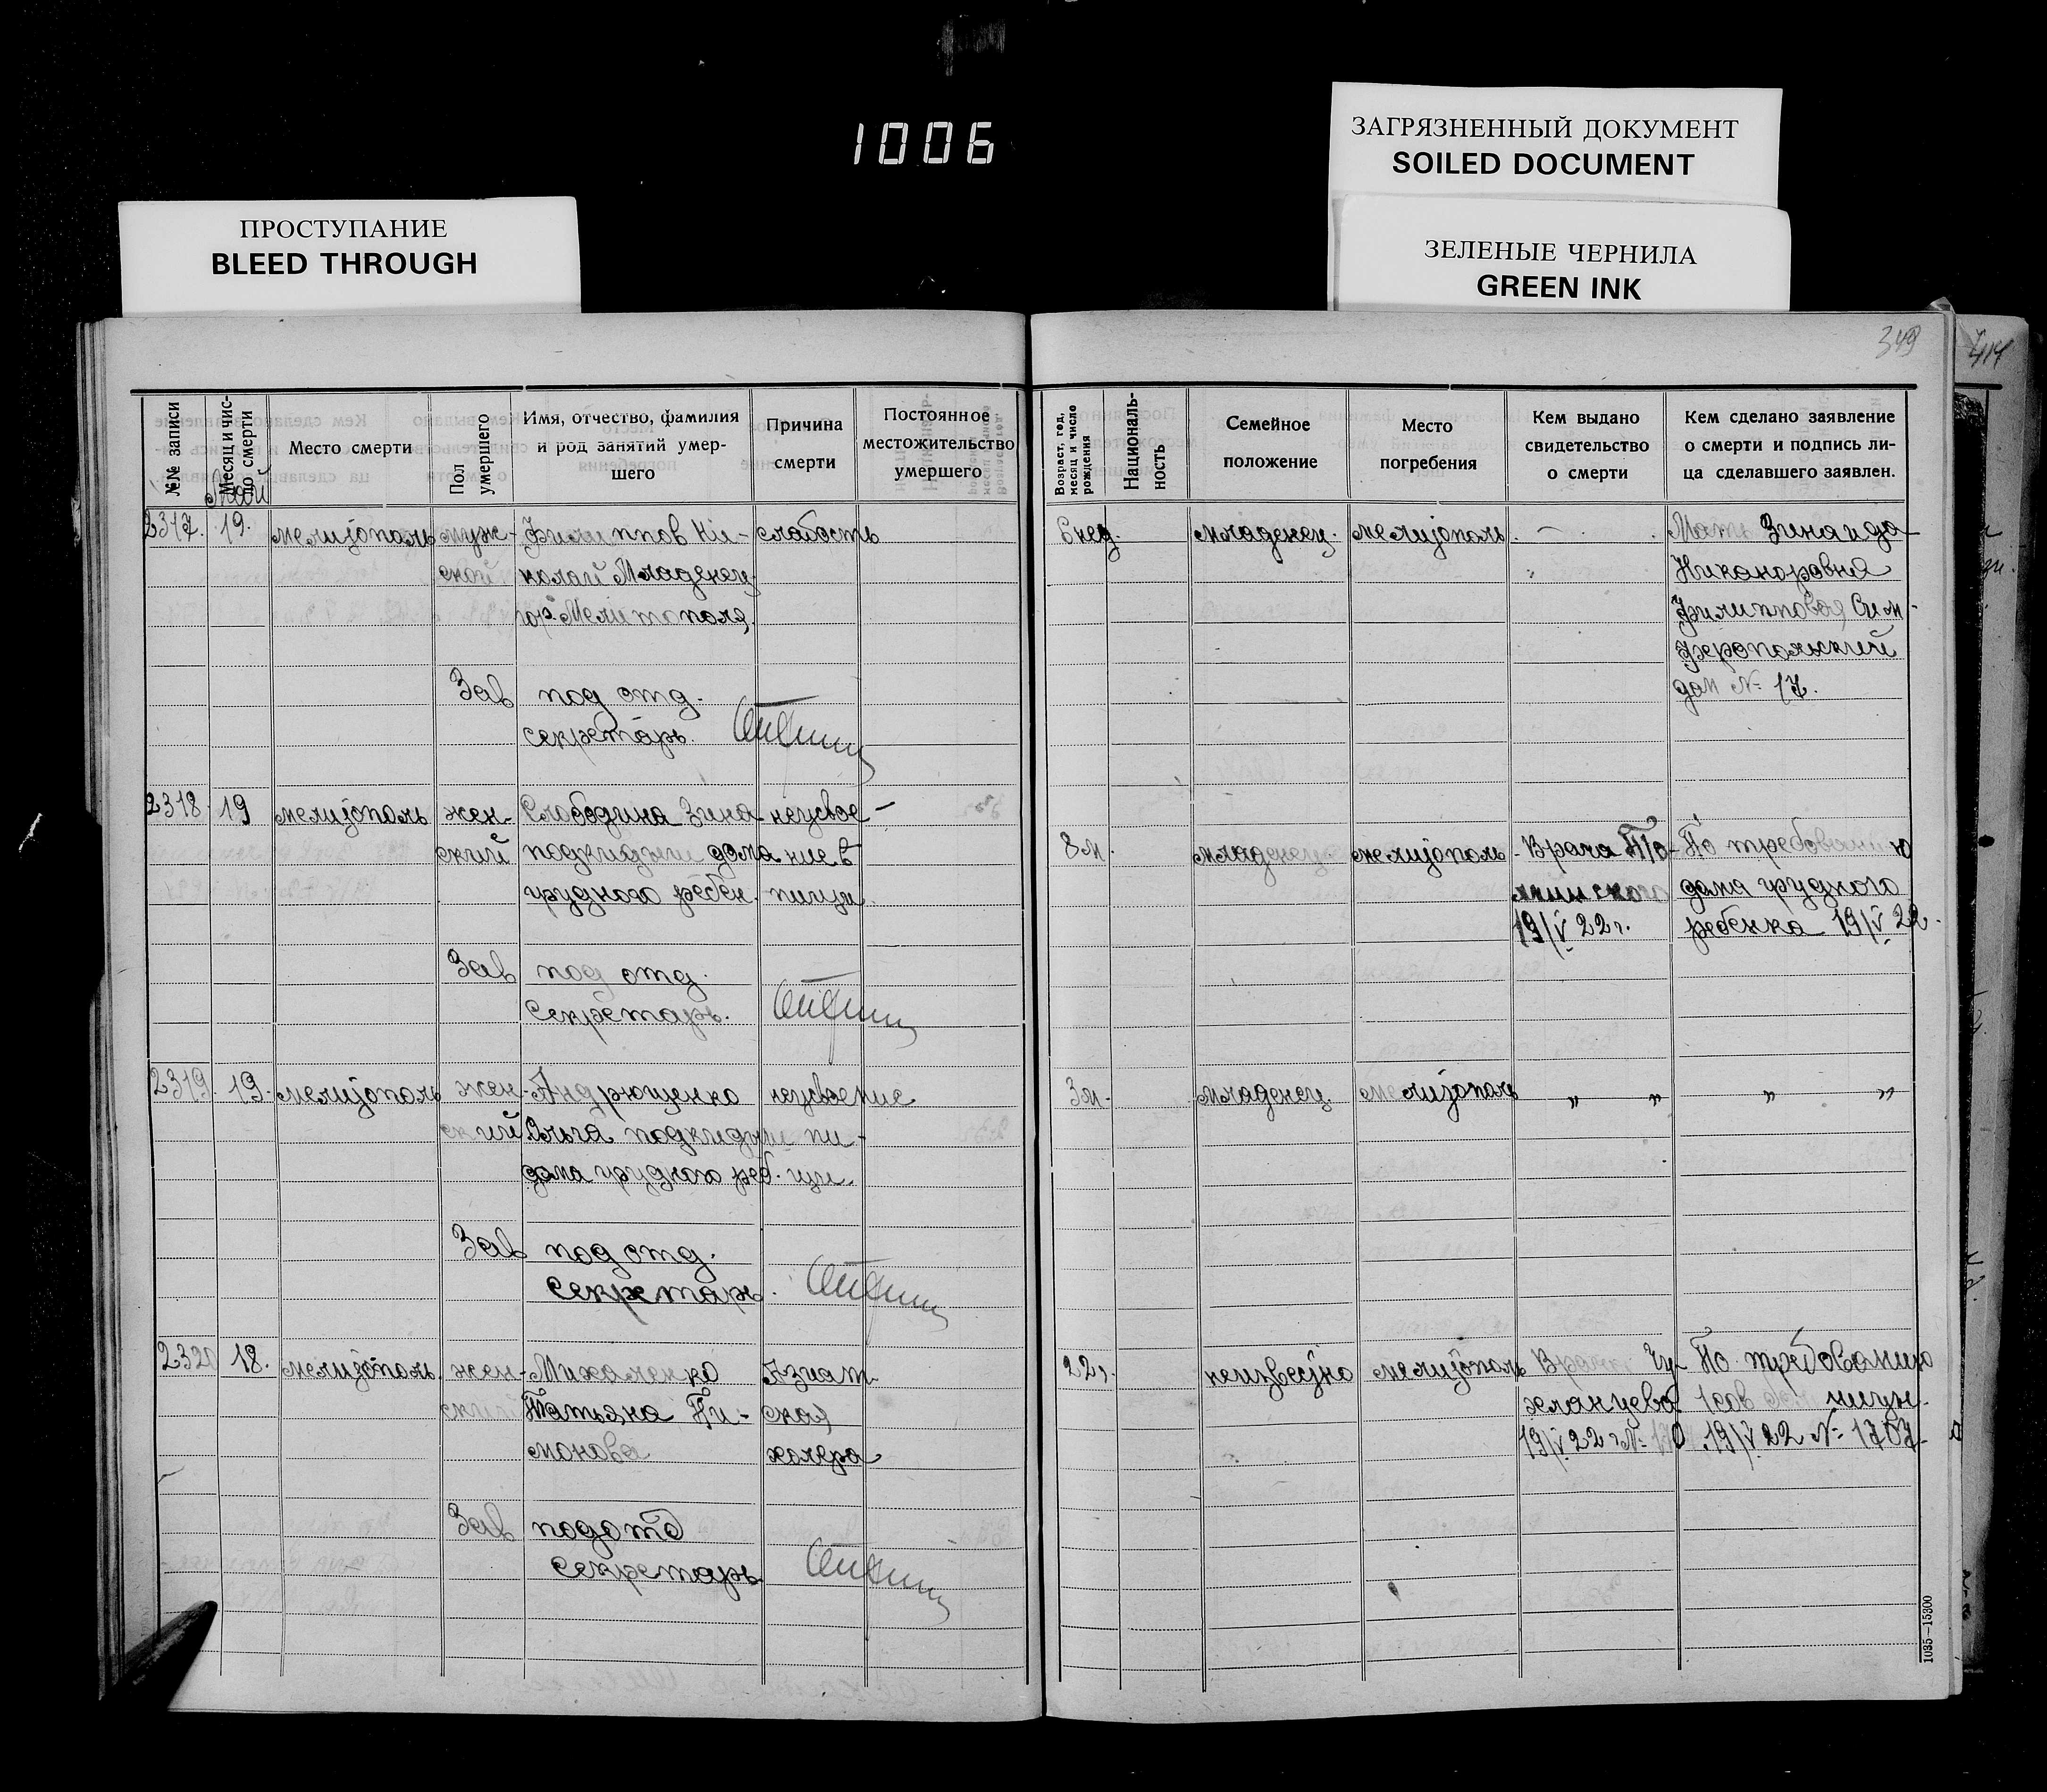 1006
ЗАГРЯЗНЕННЫЙ ДОКУМЕНТ
SOILED DOCUMENT
ПРОСТУПАНИЕ
BLEED THROUGH
ЗЕЛЕНЫЕ ЧЕРНИЛА
GREEN INK
349
414
№№ записи
Месяц и чис-
ло смерти
Место смерти
Пол
умершего
Имя, отчество, фамилия
и род занятий умер-
шего
Причина
смерти
Постоянное
местожительство
умершего
Возраст, год,
месяц и число
рождения
Националь-
ность
Семейное
положение
Место
погребения
Кем выдано
свидетельство
о смерти
Кем сделано заявление
о смерти и подпись ли-
ца сделавшего заявлен.
Май
2317. 19. мелитополь муж- Филиппов Ни- слабость 6 нед. младенец. мелитополь. Мать Зинаида
ской колай Младенец Никаноровна
гор. Мелитополя Филипповая Сим-
феропольский
дом № 17.
Зав под отд.
секретарь.
2318. 19 мелитополь жен- Слободина Зина- неусвое-
ский подкидыш дома ние в 8 м. младенец. мелитополь - Врача По- По требованию
грудного ребен. пищи дома грудного
19/V 22 г. ребенка 19/V 22.
Зав под отд.
Секретарь.
2319. 19. мелитополь жен- Андрющенко неусвоение 3 м. младенец. мелитополь „ „ „ „
ский Ольга подкидыш пи-
дома грудного реб. щи.
Зав под отд.
Секретарь.
2320 18. мелитополь. жен- Михаленко Азиат- 22 г. неизвестно мелитополь Врача Чу- По требованию
ский Татьяна Пи- ская хланцева 1 сов
монова холера 19/V 22 г. № 19/V 22 № 1707
Зав подотд
Секретарь
1035—15300